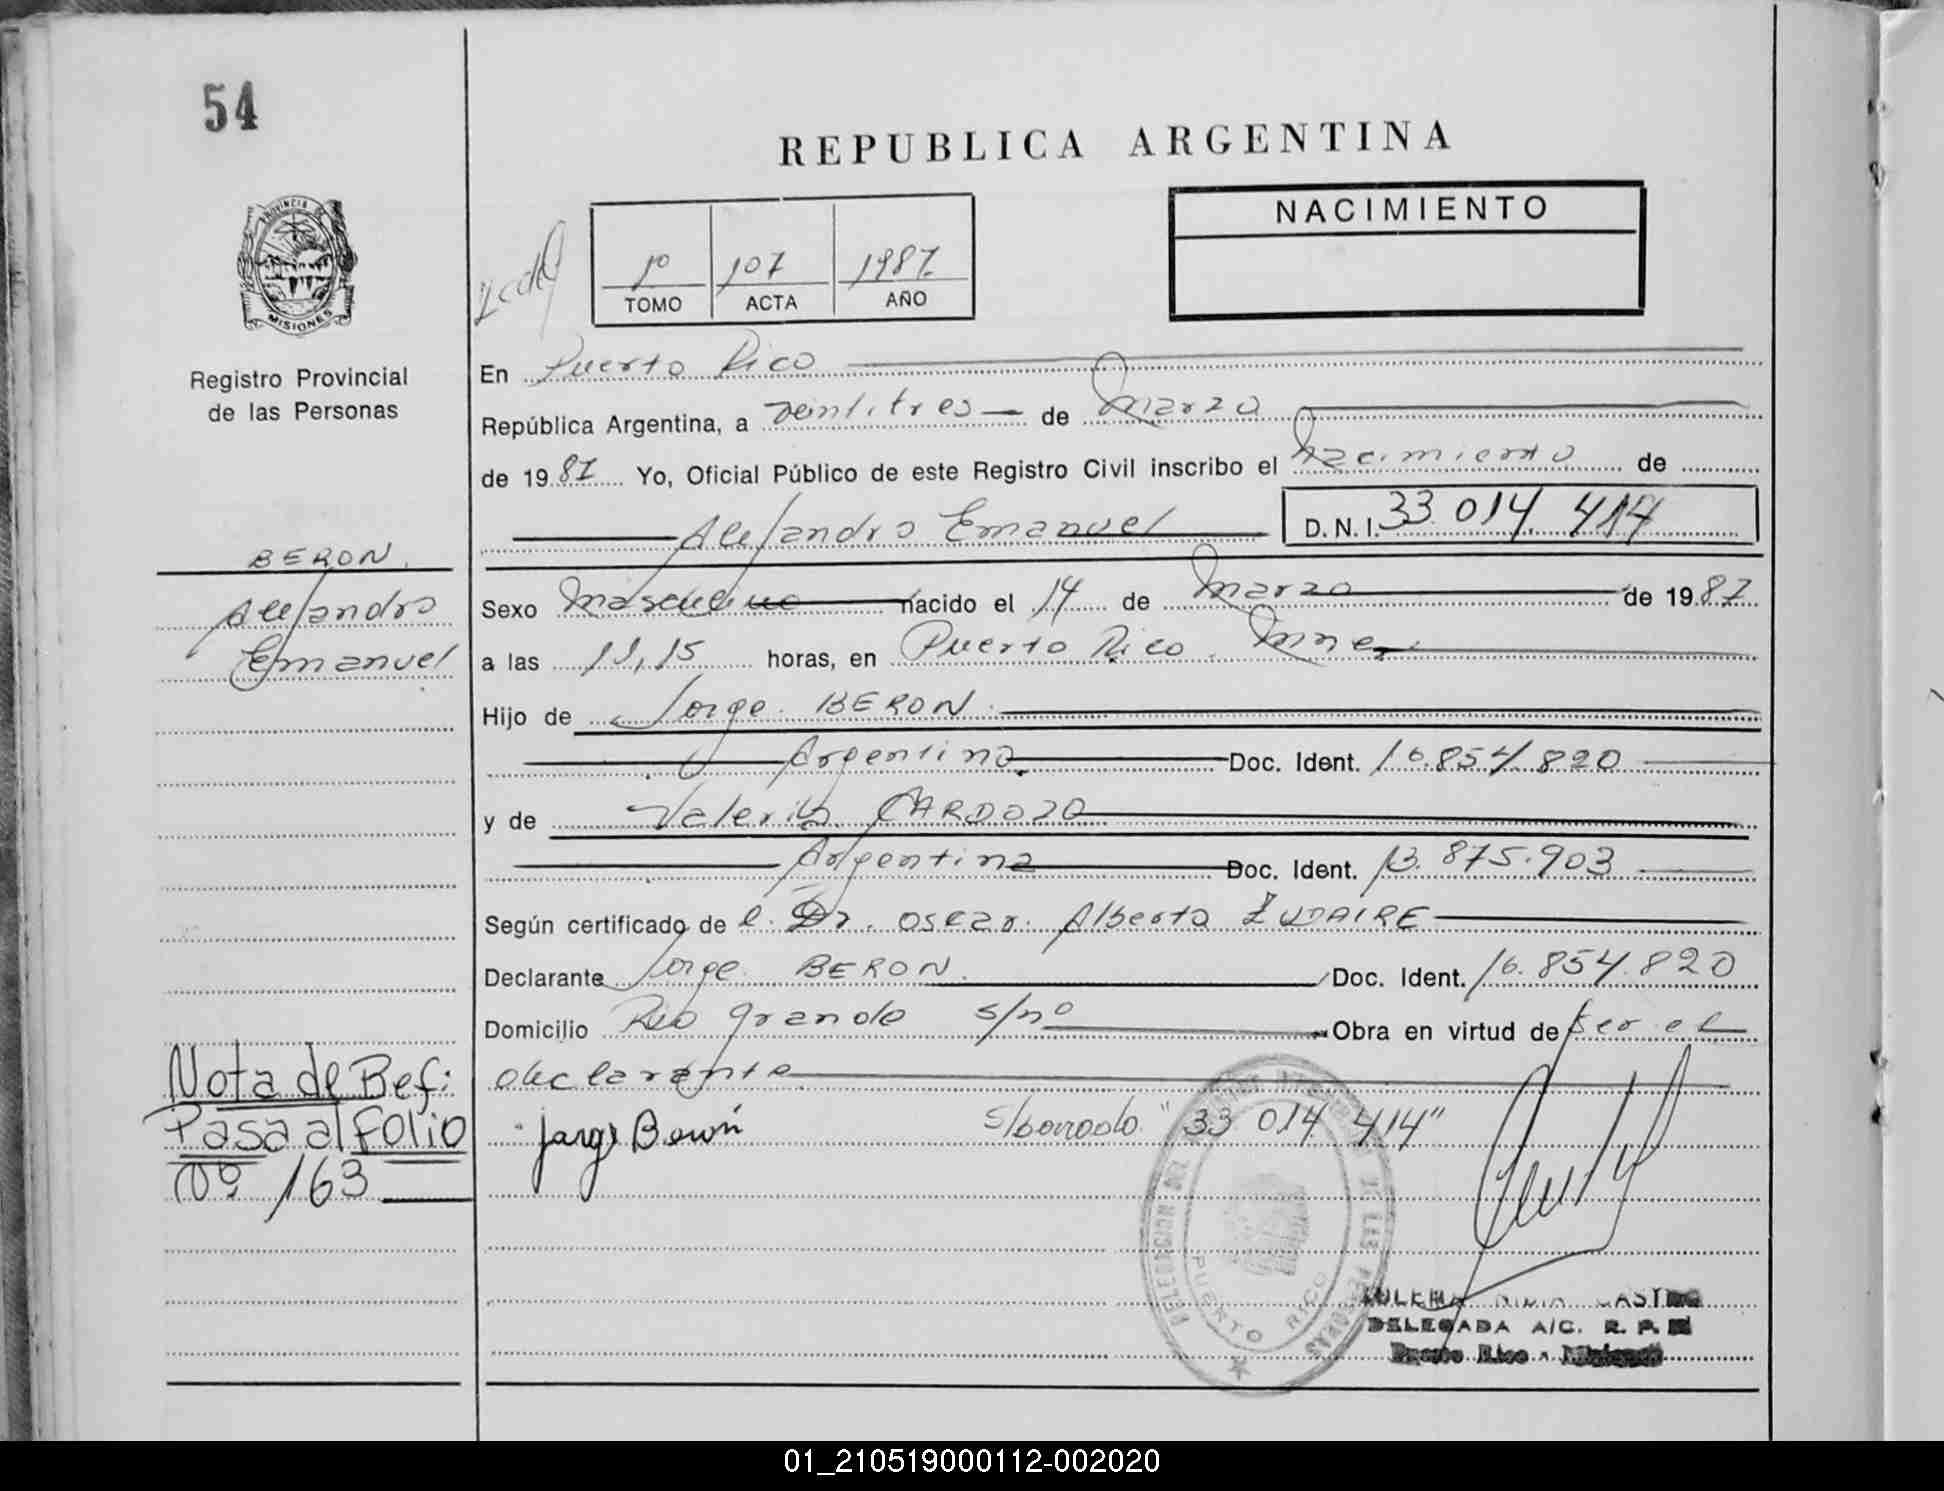 54
REPUBLICA ARGENTINA
PROVINCIA DE
MISIONES
Registro Provincial
de las Personas
1º 107 1987
TOMO ACTA AÑO
NACIMIENTO
En Puerto Rico
República Argentina, a veintitres de Marzo
de 1987 Yo, Oficial Público de este Registro Civil inscribo el Nacimiento de
Alejandro Emanuel D.N.I. 33 014 414
BERON
Alejandro
Emanuel
Sexo Masculino nacido el 14 de Marzo de 1987
a las 11,15 horas, en Puerto Rico. Mnes
Hijo de Jorge BERON
Argentino Doc. Ident. 16.854.820
y de Valeria CARDOZO
Argentina Doc. Ident. 13.875.903
Según certificado de l. Dr. Oscar Alberto ZUDAIRE
Declarante Jorge BERON Doc. Ident. 16.854.820
Domicilio Rio grande s/nº Obra en virtud de ser el
declarante
Nota de Ref:
Pasa al Folio
Nº 163
Jorge Beron S/borrado "33 014 414"
DELEGACION DEL REGISTRO DE LAS PERSONAS
PUERTO RICO
CASTRO
DELEGADA A/C. R. P.
Puerto Rico - Misiones
01_210519000112-002020